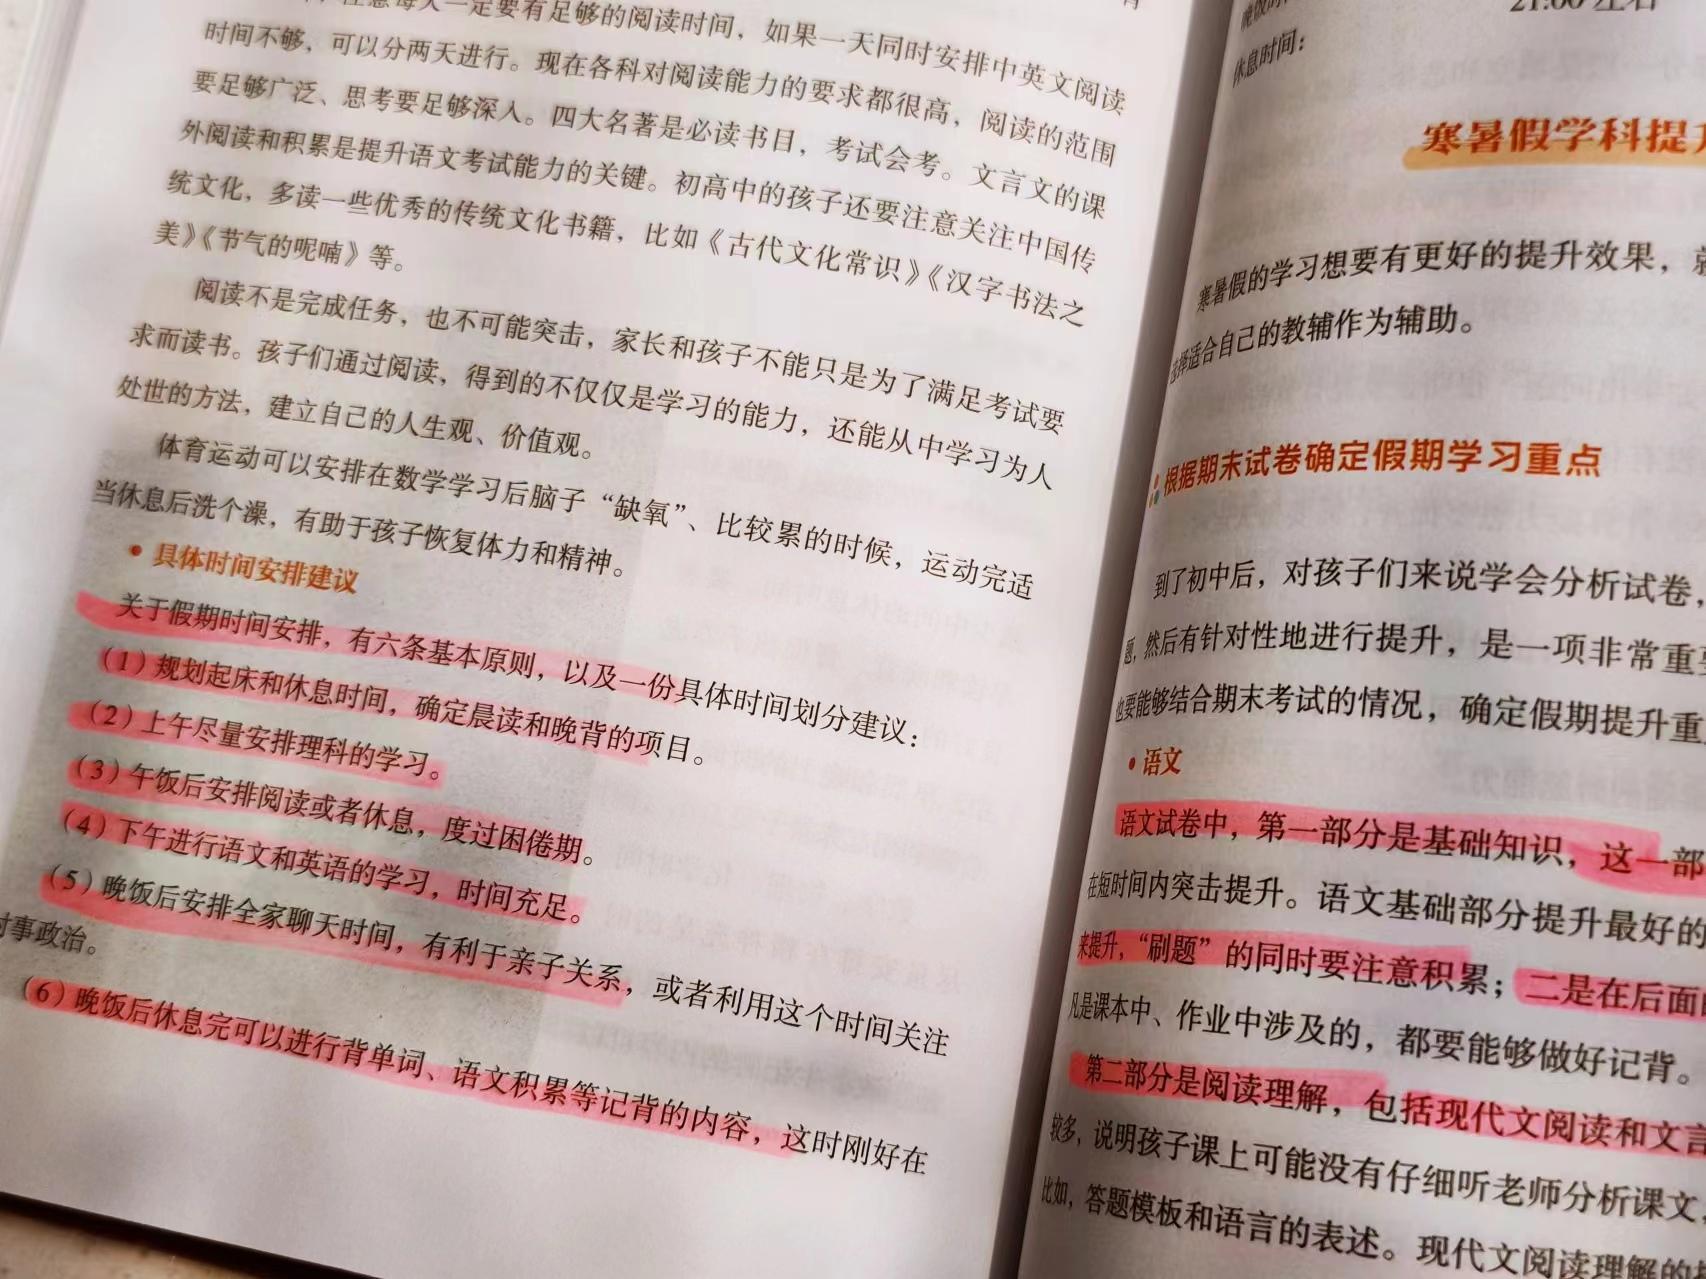 注意每天一定要有足够的阅读时间，如果一天同时安排中英文阅读
时间不够，可以分两天进行。现在各科对阅读能力的要求都很高，阅读的范围
要足够广泛、思考要足够深入。四大名著是必读书目，考试会考。文言文的课
外阅读和积累是提升语文考试能力的关键。初高中的孩子还要注意关注中国传
统文化，多读一些优秀的传统文化书籍，比如《古代文化常识》《汉字书法之
美》《节气的呢喃》等。
阅读不是完成任务，也不可能突击，家长和孩子不能只是为了满足考试要
求而读书。孩子们通过阅读，得到的不仅仅是学习的能力，还能从中学习为人
处世的方法，建立自己的人生观、价值观。
体育运动可以安排在数学学习后脑子“缺氧”、比较累的时候，运动完适
当休息后洗个澡，有助于孩子恢复体力和精神。
• 具体时间安排建议
关于假期时间安排，有六条基本原则，以及一份具体时间划分建议：
（1）规划起床和休息时间，确定晨读和晚背的项目。
（2）上午尽量安排理科的学习。
（3）午饭后安排阅读或者休息，度过困倦期。
（4）下午进行语文和英语的学习，时间充足。
（5）晚饭后安排全家聊天时间，有利于亲子关系，或者利用这个时间关注
时事政治。
（6）晚饭后休息完可以进行背单词、语文积累等记背的内容，这时刚好在
21:00 左右
休息时间：
寒暑假学科提
寒暑假的学习想要有更好的提升效果，
选择适合自己的教辅作为辅助。
根据期末试卷确定假期学习重点
到了初中后，对孩子们来说学会分析试卷，
题，然后有针对性地进行提升，是一项非常重
也要能够结合期末考试的情况，确定假期提升重
• 语文
语文试卷中，第一部分是基础知识，这一部
在短时间内突击提升。语文基础部分提升最好的
来提升，“刷题”的同时要注意积累；二是在后面
凡是课本中、作业中涉及的，都要能够做好记背。
第二部分是阅读理解，包括现代文阅读和文言
较多，说明孩子课上可能没有仔细听老师分析课文，
比如，答题模板和语言的表述。现代文阅读理解的